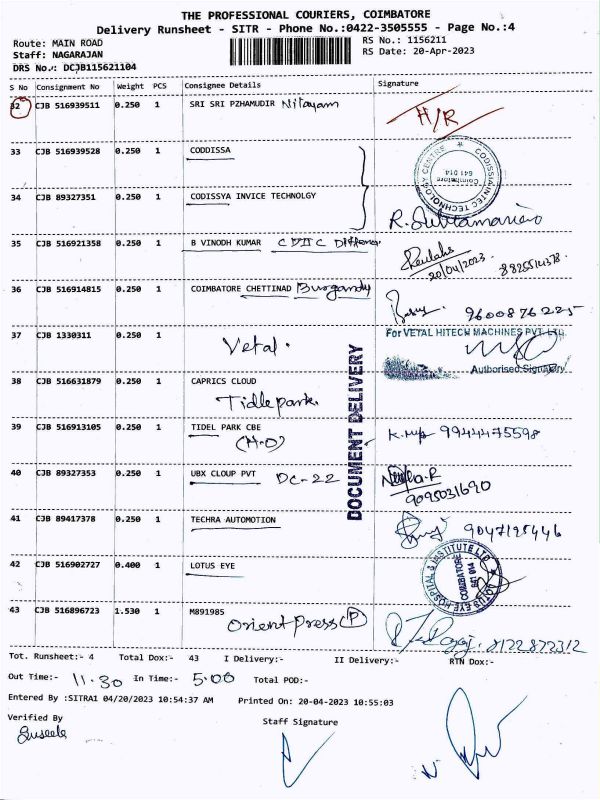 THE PROFESSIONAL COURIERS, COIMBATORE
Delivery Runsheet - SITR - Phone No.:0422-3505555 - Page No.:4
Route: MAIN ROAD
RS No.: 1156211
Staff: NAGARAJAN
RS Date: 20-Apr-2023
DRS No.: DCJB115621104
S No Consignment No Weight PCS Consignee Details Signature
32 CJB 516939511 0.250 1 SRI SRI PZHAMUDIR Nilayam H/R
33 CJB 516939528 0.250 1 CODDISSA
CODISSIA INTEC TECHNOLOGY CENTRE
Coimbatore
641 014
34 CJB 89327351 0.250 1 CODISSYA INVICE TECHNOLGY
35 CJB 516921358 0.250 1 B VINODH KUMAR
20/04/2023.
36 CJB 516914815 0.250 1 COIMBATORE CHETTINAD Burgandy
9600876225
37 CJB 1330311 0.250 1 Vetal.
For VETAL HITECH MACHINES PVT. LTD.
Authorised Signatory
38 CJB 516631879 0.250 1 CAPRICS CLOUD
Tidle park.
DOCUMENT DELIVERY
39 CJB 516913105 0.250 1 TIDEL PARK CBE
(H-O)
9944475598
40 CJB 89327353 0.250 1 UBX CLOUP PVT DC-22
9095031690
41 CJB 89417378 0.250 1 TECHRA AUTOMOTION
9047195446
42 CJB 516902727 0.400 1 LOTUS EYE
LOTUS EYE HOSPITAL & INSTITUTE LTD
COIMBATORE
641 014
43 CJB 516896723 1.530 1 M891985
Orient Press (P)
8122872312
Tot. Runsheet:- 4 Total Dox:- 43 I Delivery:- II Delivery:- RTN Dox:-
Out Time:- 11.30 In Time:- 5.00 Total POD:-
Entered By :SITRA1 04/20/2023 10:54:37 AM Printed On: 20-04-2023 10:55:03
Verified By
Staff Signature
Suseela